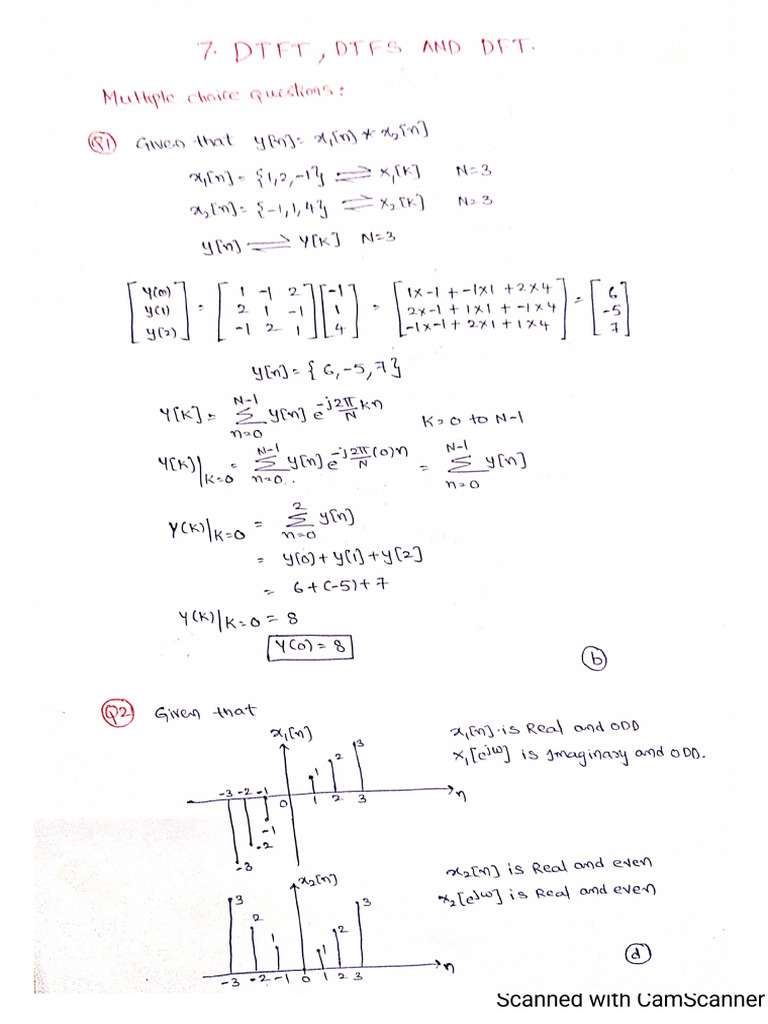 7. DTFT, DTFS AND DFT.
Multiple choice questions:
Q1 Given that y[n] = x₁[n] * x₂[n]
x₁[n] = {1, 2, -1} ⇌ X₁[K] N=3
x₂[n] = {-1, 1, 4} ⇌ X₂[K] N=3
y[n] ⇌ Y[K] N=3
[y(0) y(1) y(2)] = [1 -1 2; 2 1 -1; -1 2 1] [-1 1 4] = [1x-1 + -1x1 + 2x4; 2x-1 + 1x1 + -1x4; -1x-1 + 2x1 + 1x4] = [6 -5 7]
y[n] = {6, -5, 7}
Y[K] = N-1 Σ n=0 y[n] e^-j2π/N kn K=0 to N-1
Y[K]|K=0 = N-1 Σ n=0 y[n] e^-j2π/N (0)n = N-1 Σ n=0 y[n]
Y(K)|K=0 = 2 Σ n=0 y[n]
= y[0] + y[1] + y[2]
= 6 + (-5) + 7
Y(K)|K=0 = 8
Y(0) = 8
b
Q2 Given that
x₁[n]
3
2
1
-3 -2 -1 0 1 2 3 n
-1
-2
-3
x₁[n] is Real and ODD
X₁[e^jω] is Imaginary and ODD.
x₂[n]
3 2 1 1 2 3
-3 -2 -1 0 1 2 3 n
x₂[n] is Real and even
x₂[e^jω] is Real and even
d
Scanned with CamScanner